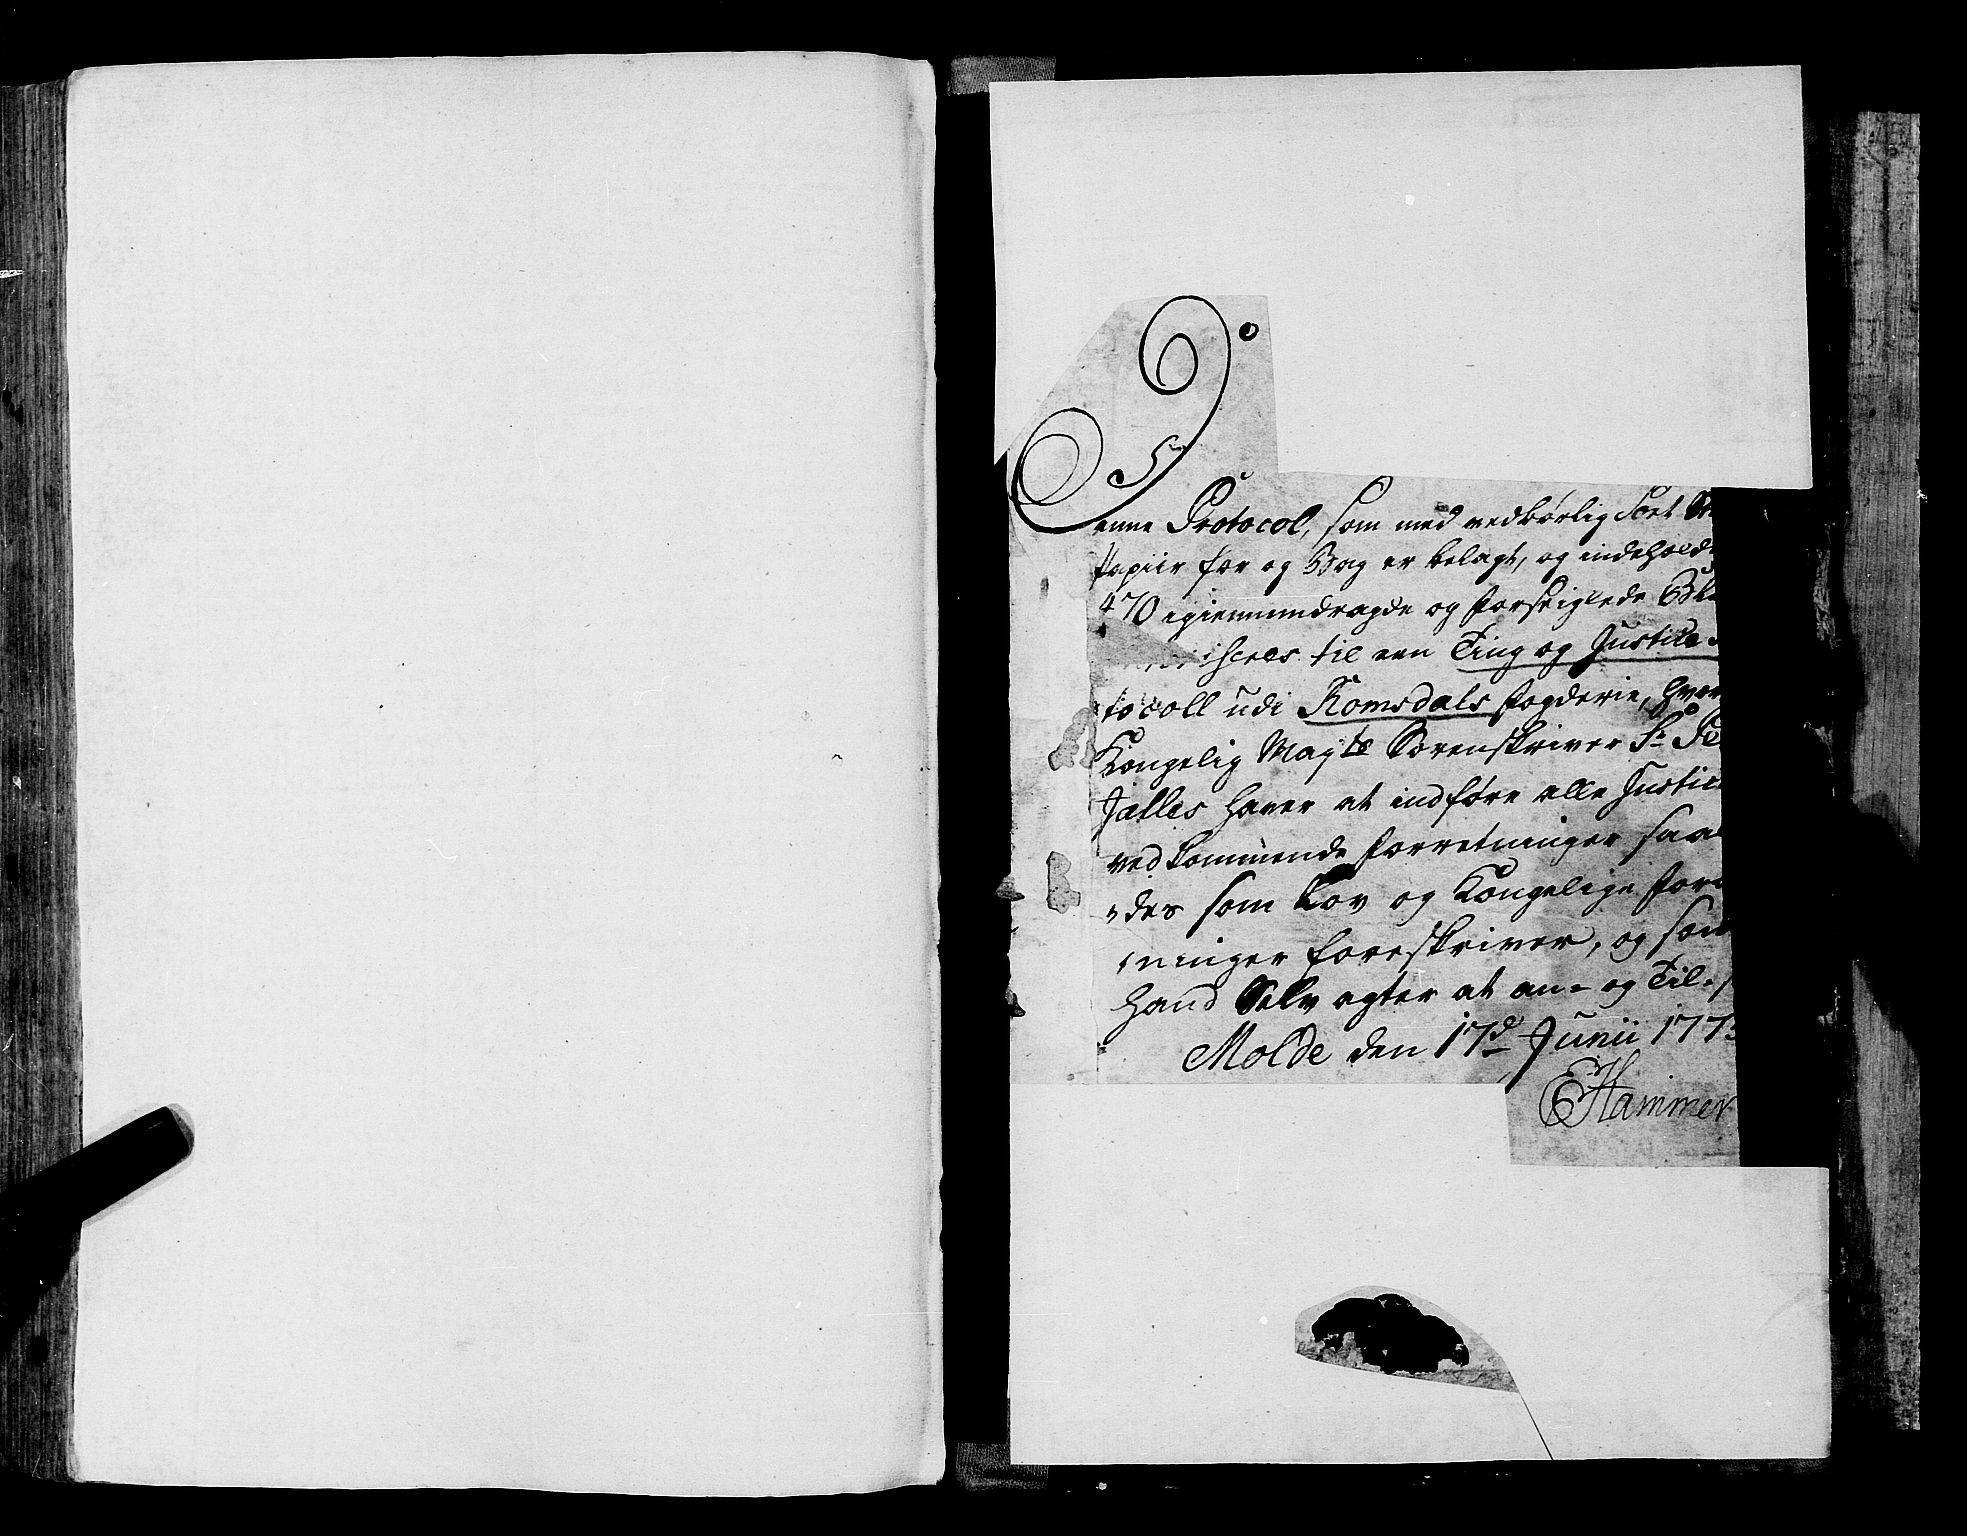 Denne Protocol, som med vedbørlig Sort
Papiir for og Bag er belagt, og indehold
470 igiennemdragde og forseiglede
til een Ting og Justice
tocoll udi Romsdals fogderie, hvor
Kongelig Maÿts Sorenskriver Sr
Jalles haver at indføre alle Justice
vedkommende forretninger saa
des som Lov og Kongelige for
ninger foreskriver, og som
hand Selv agter at an- og Til-
Molde den 17de Junii 1773
EHammer